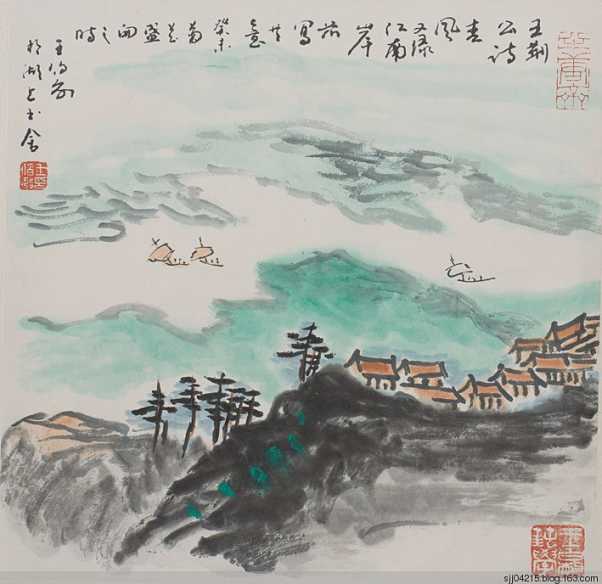 王荆
公诗
春
风
又绿
江南
岸
写
其
意
癸未
菊
花
盛
开
之
时
王伯敏
於湖上书舍
sjj04215.blog.163.com